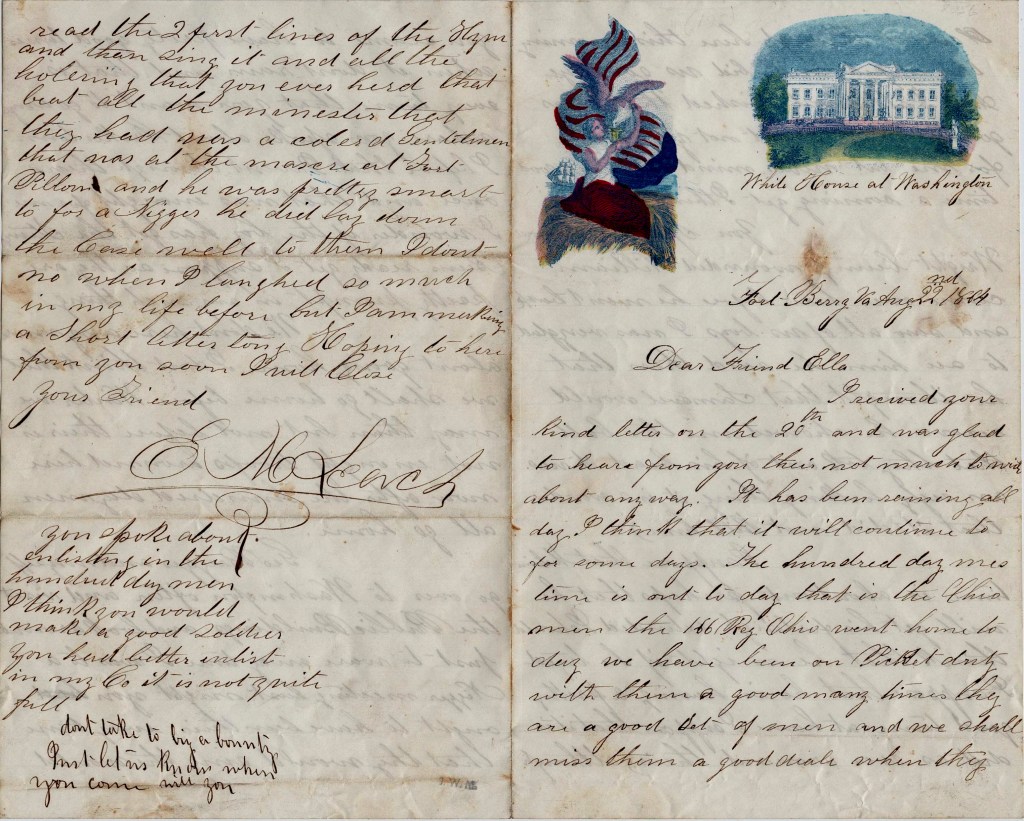 read the 2 first lines of the Hym
and than sing it and all the
holering that you ever herd that
beat all the minester that
they had was a colerd Gentelmen
that was at the mascre at Fort
Pillow and he was pretty smart
to for a Nigger he did lay down
the Case well to them I dont
no when I laughed so much
in my life before but I am makeing
a Short letter long Hoping to here
from you soon I will Close
your Friend
E M Leach
you spoke about
enlisting in the
hundred day men
I think you would
make a good soldier
you had better enlist
in my Co it is not quite
full
dont take to big a bounty
Just let us know when
you come will you
White House at Washington
Fort Berry Va Aug 22nd 1864
Dear Friend Ella
I recived your
kind letter on the 20th and was glad
to hear from you their not much to
about anyway. It has been raining all
day I think that it will continue to
for some days. The hundred day mes
time is out to day that is the Ohio
men the 166 Reg Ohio went home to
day we have been on Picket duty
with them a good many times they
are a good set of men and we shall
miss them a good deale when they